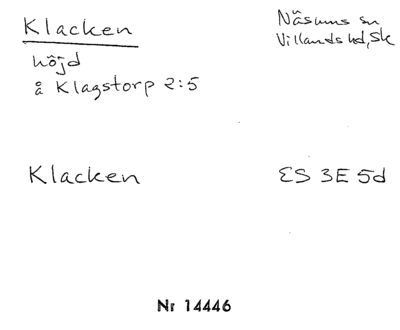 Klacken
Näsums sn
Villands hd, Sk
höjd
å Klagstorp 2:5
Klacken
ES 3E 5d
Nr 14446